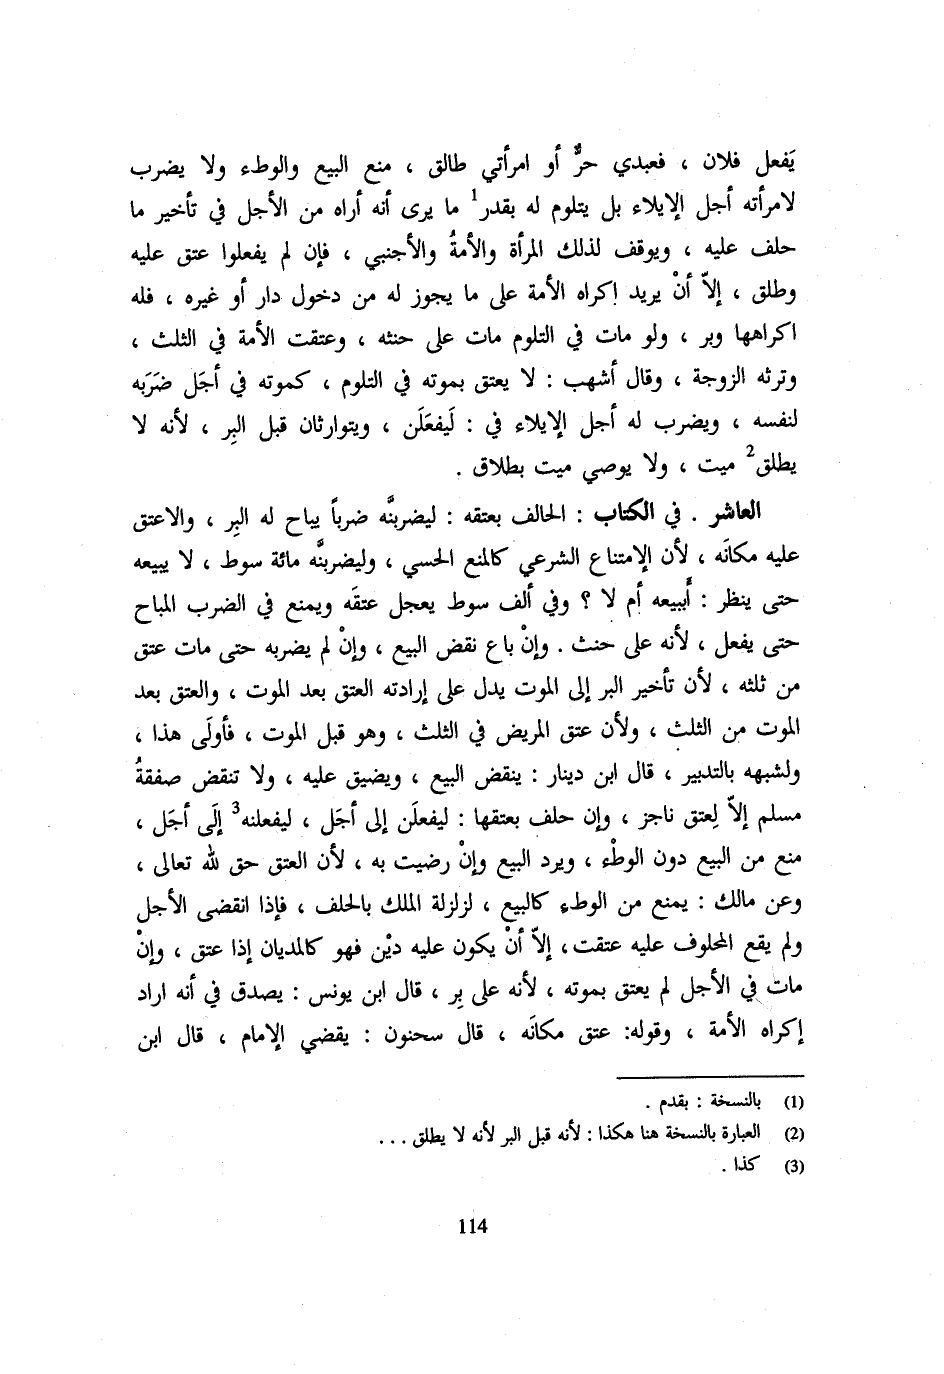 يَفعل فلان ، فعبدي حرٌّ أو امرأتي طالق ، منع البيع والوطء ولا يضرب
لامرأته أجل الإيلاء بل يتلوم له بقدر1 ما يرى أنه أراه من الأجل في تأخير ما
حلف عليه ، ويوقف لذلك المرأة والأمةُ والأجنبي ، فإن لم يفعلوا عتق عليه
وطلق ، إلاّ أنْ يريد إكراه الأمة على ما يجوز له من دخول دار أو غيره ، فله
اكراهها وبر ، ولو مات في التلوم مات على حنثه ، وعتقت الأمة في الثلث ،
وترثه الزوجة ، وقال أشهب : لا يعتق بموته في التلوم ، كموته في أجَل ضَرَبه
لنفسه ، ويضرب له أجل الإيلاء في : لَيفعَلَن ، ويتوارثان قبل البِر ، لأنه لا
يطلق2 ميت ، ولا يوصي ميت بطلاق .
العاشر . في الكتاب : الحالف بعتقه : ليضربنَّه ضرباً يباح له البِر ، والاعتق
عليه مكانَه ، لأن الإمتناع الشرعي كالمنع الحسي ، وليضربنَّه مائة سوط ، لا يبيعه
حتى ينظر : أَيبيعه أم لا ؟ وفي ألف سوط يعجل عتقَه ويمنع في الضرب المباح
حتى يفعل ، لأنه على حنث . وإنْ باع نقض البيع ، وإنْ لم يضربه حتى مات عتق
من ثلثه ، لأن تأخير البر إلى الموت يدل على إرادته العتق بعد الموت ، والعتق بعد
الموت من الثلث ، ولأن عتق المريض في الثلث ، وهو قبل الموت ، فأولَى هذا ،
ولشبهه بالتدبير ، قال ابن دينار : ينقض البيع ، ويضيق عليه ، ولا تنقض صفقةُ
مسلم إلاّ لِعتق ناجز ، وإن حلف بعتقها : ليفعلَن إلى أجَل ، ليفعلنه3 إلَى أجَل ،
منع من البيع دون الوطْء ، ويرد البيع وإنْ رضيت به ، لأن العتق حق لله تعالى ،
وعن مالك : يمنع من الوطء كالبيع ، لزلزلة الملك بالحلف ، فإذا انقضى الأجل
ولم يقع المحلوف عليه عتقت، إلاّ أنْ يكون عليه ديْن فهو كالمديان إذا عتق ، وإنْ
مات في الأجل لم يعتق بموته ، لأنه على بِر ، قال ابن يونس : يصدق في أنه اراد
إكراه الأمة ، وقوله: عتق مكانَه ، قال سحنون : يقضي الإمام ، قال ابن
(1) بالنسخة : بقدم .
(2) العبارة بالنسخة هنا هكذا : لأنه قبل البر لأنه لا يطلق . . .
(3) كذا .
114